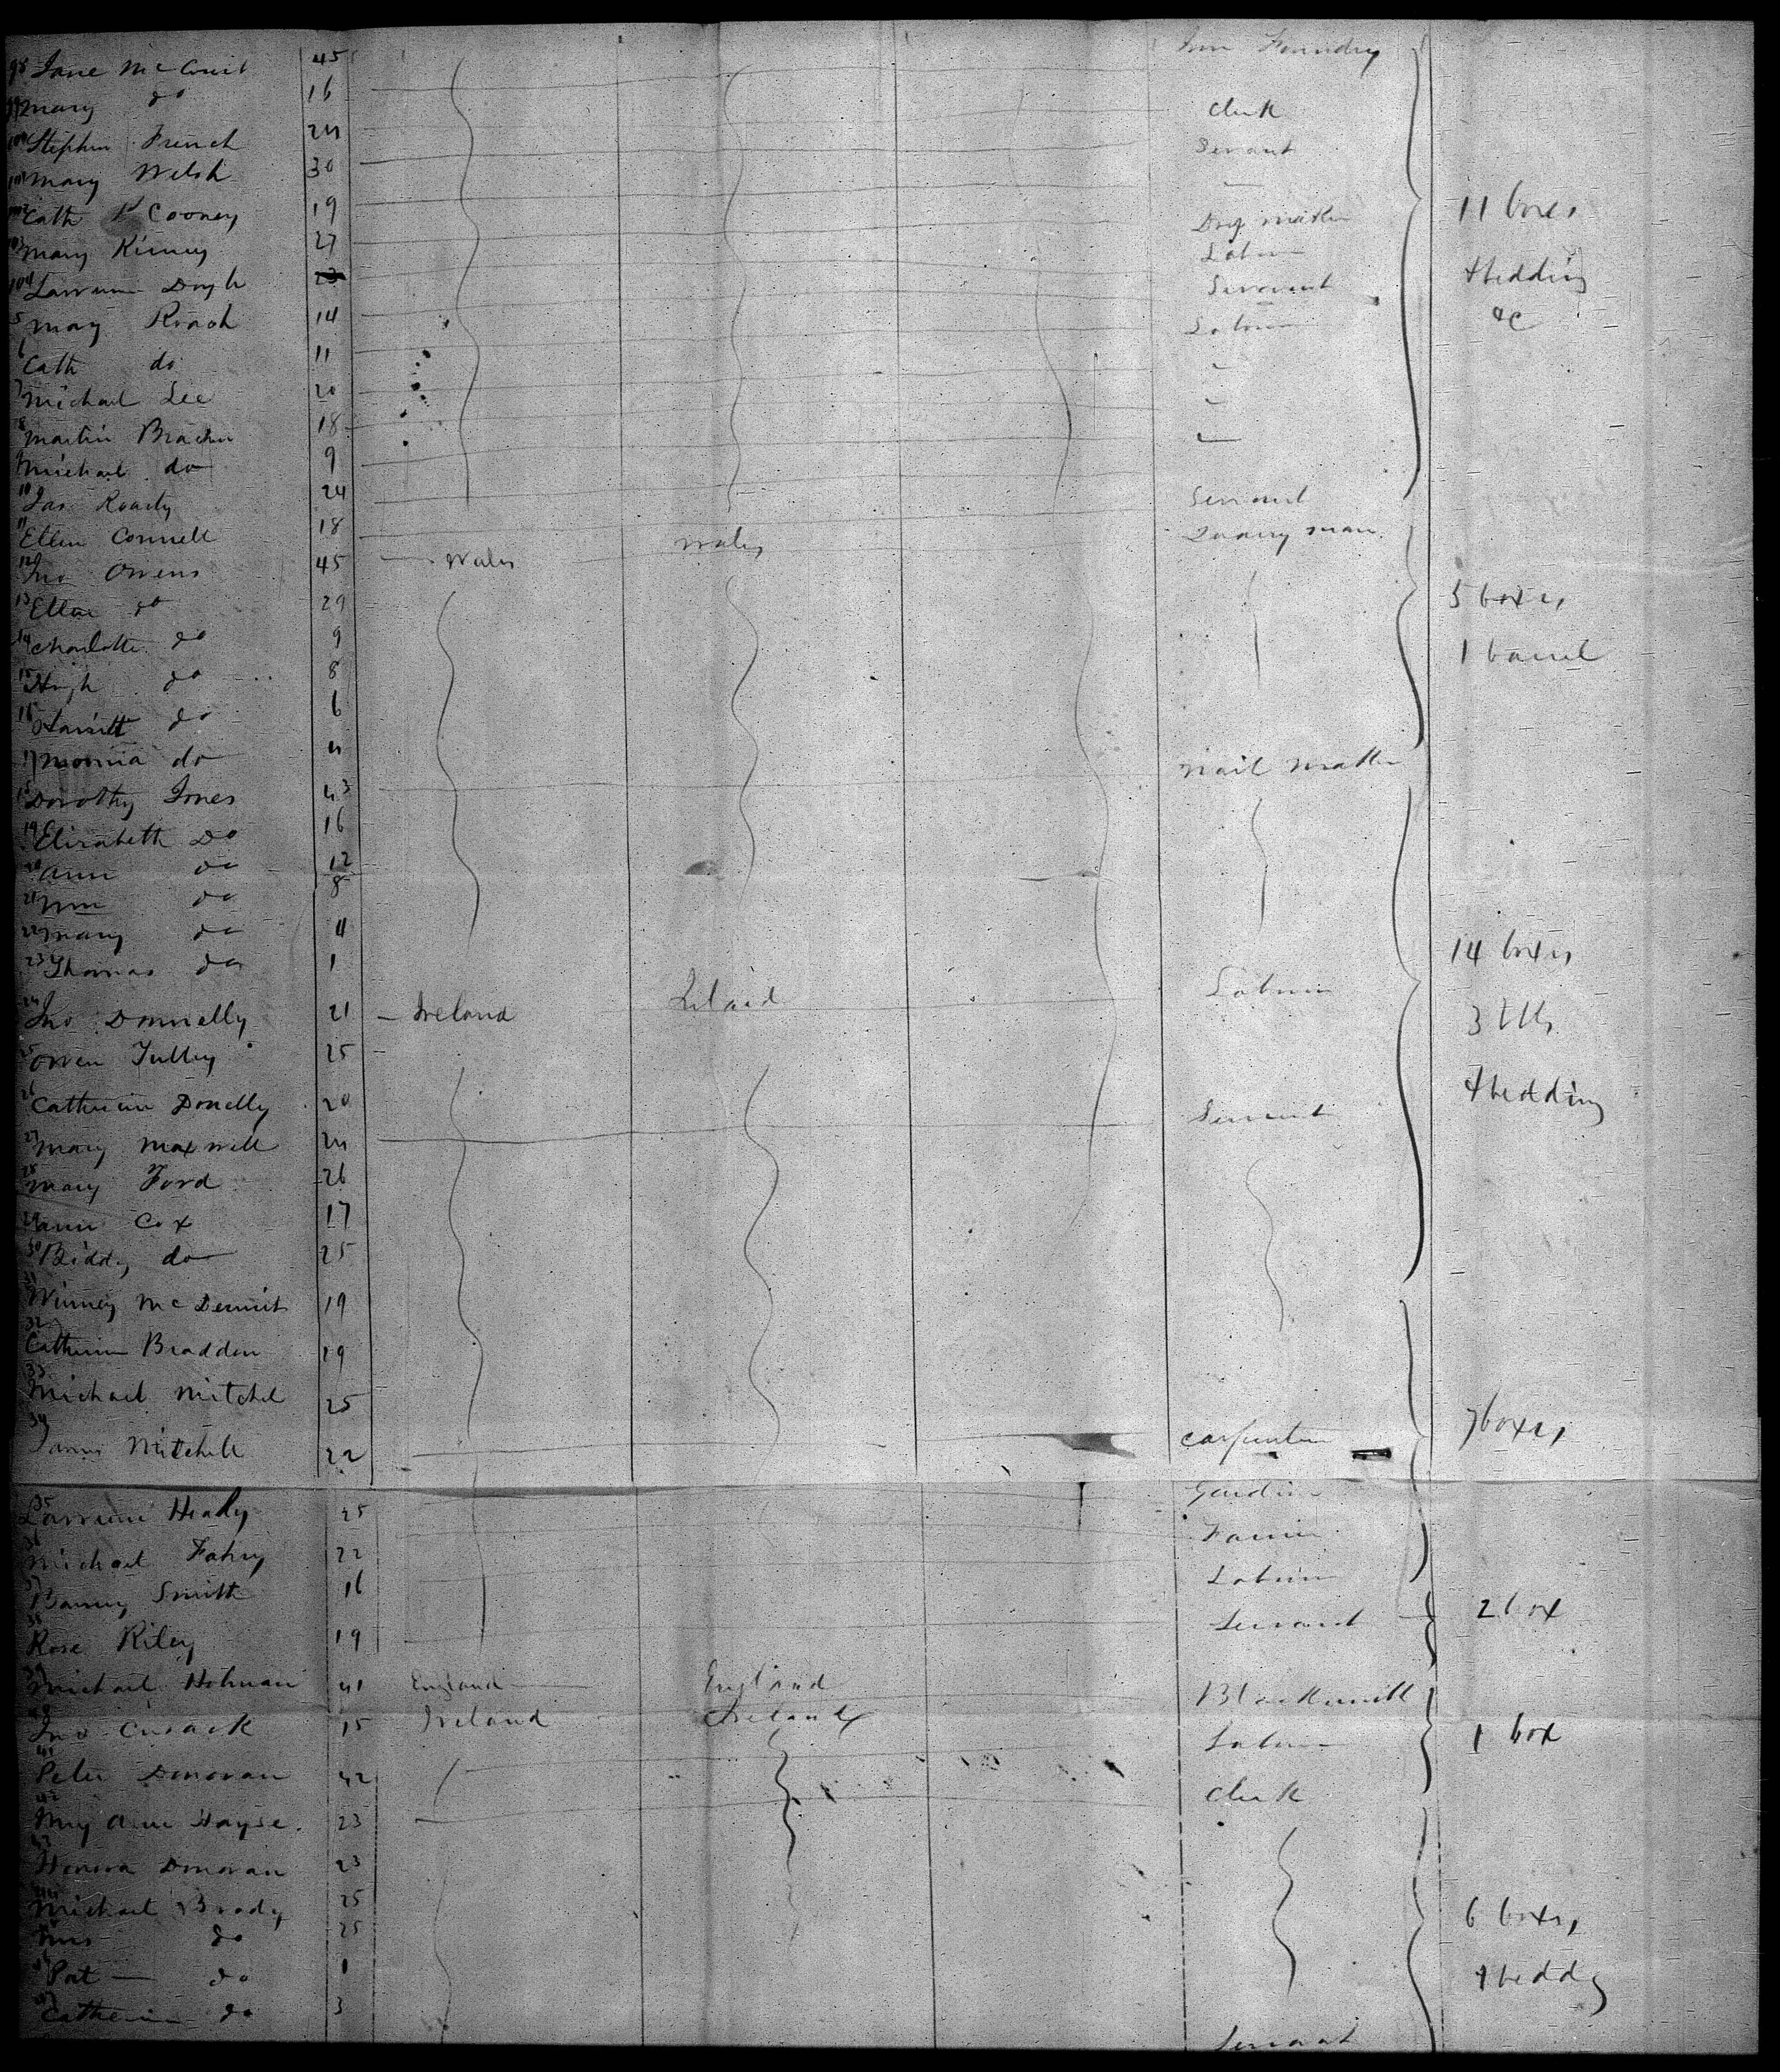 Iron Foundry
98 Jane McCourt 45
99 Mary do 16 Clerk
100 Stephen French 24 Servant
101 Mary Welsh 30 —
102 Cath Cooney 19 11 boxes
103 Mary Kinney 27 Labour
104 Lawrence Doyle 23 Servant & bedding
5 Mary Roach 14 Labour &c
6 Cath do 11
7 Michael Lee 20
8 Martin Bracken 18
9 Michael do 9
10 Jas Roarty 24 Servant
11 Ellen Connell 18 Quarry man
12 Jno Owens 45 Wales Wales
13 Ellen do 29 5 boxes
14 Charlotte do 9 1 barrel
15 Hugh do 8
16 Harriett do 6
17 do 4 Nail maker
18 Dorothy Jones 43
19 Elizabeth Do 16
20 Ann do 12
21 Wm do 8
22 Mary do 4 14 boxes
23 Thomas do 1
24 Jno Donnelly 21 Ireland Ireland Labour 3 bbls
25 Owen Tulley 25
26 Catherine Donelly 20 Servant & bedding
27 Mary Maxwell 24
28 Mary Ford 26
29 Ann Cox 17
30 Biddy do 25
31 Winney McDermit 19
32 Catherine Braddon 19
33 Michael Mitchel 25
34 James Mitchell 22 Carpenter 7 boxes
35 Lawrence Healy 25 Gardin
36 Michael Fahey 22 Farmer
37 Barney Smith 16 Labour
38 Rose Riley 19 Servant 2 box
39 Michael Holman 41 England England Blacksmith
40 Jno Cusack 15 Ireland Ireland Labour 1 box
41 Peter Donovan 42 Clerk
42 My Ann Hayse 23
43 Honora Donovan 23
44 Michael Brady 25 6 boxes
45 Mrs do 25
46 Pat — do 1 & beddg
47 Catherine do 3
Servant